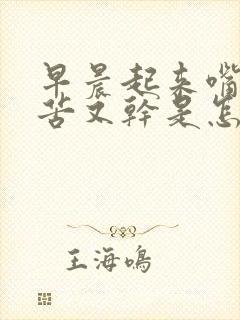 早晨起来嘴
苦又幹是怎
王海鸣